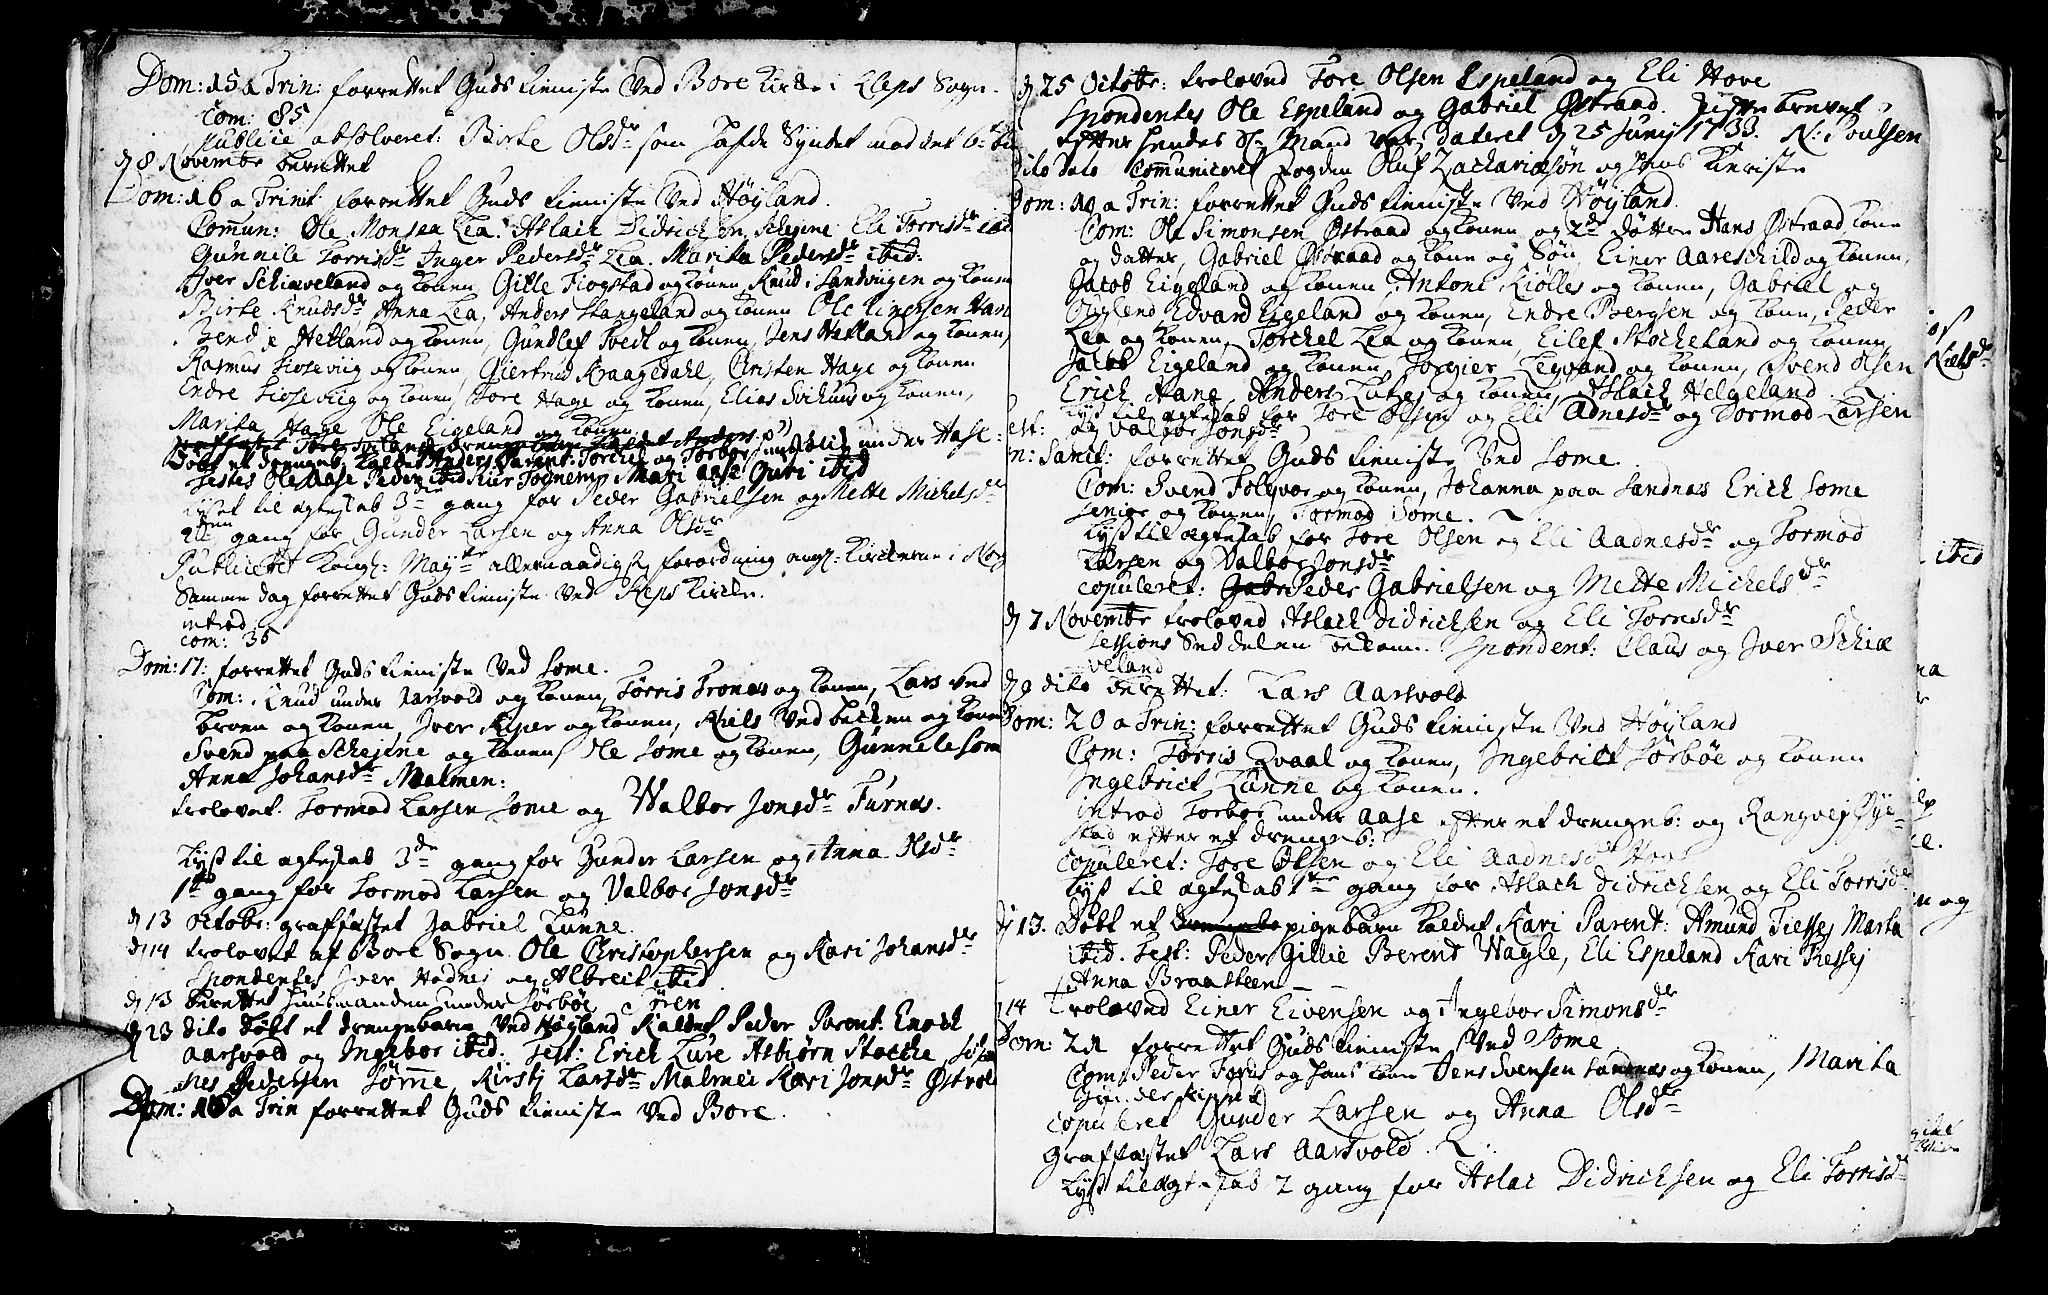 Dom: 15 a Trin: forrettet Guds tieniste Ved Bore Kircke i Cleps Sogn.
Com: 85
Publice absolveret: Birte Olsdr som hafde Syndet mod det 6te bud
d 8 Novembr berettet
Dom: 16 a Trinit forrettet Guds tieniste Ved Høyland.
Commun: Ole Monsen Lea. Aslach Didrichsen Schejene Eli Torrisdr ibid
Gunnile Torrisdr Inger Pedersdr Lea. Marita Pedersdr ibid:
Iver Schiæveland og konen, Gitle Frogstad og konen, Knud i Sandvigen og konen
Birte Knudsdr, Anna Lea, Anders Stangeland og konen Ole Einersen Hane
Bendix Hetland og konen, Gundlef Tvedt og konen, Jens Hetland og konen,
Rasmus Lisseviig og konen, Giertrud Kraagedahl, Christen Hage og konen
Endre Lisseviig og konen, Tore Hage og konen, Elias Svihuus og konen,
Marita Hage Ole Eigeland og konen
Døbt et drengeb: kaldet Anders Parent: Torchel og Torbor under Aase:
Testes Ole Aase Peder ibid Siur Fognemp Mari Aase Guri ibid
Lyst til ægteskab 3de gang for Peder Gabrielsen og Mette Michelsdr
2den gang for Gunder Larsen og Anna Olsdr
Publicitet Kongl: Mayts allernaadigste forordning angl: Kirckerne i Norge
Samme dag forrettet Guds tieniste Ved Kleps Kircke.
introd:
com: 35
Dom: 17: forrettet Guds tieniste Ved Some.
Com: Knud under Aarsvold og konen, Torris Tronæs og konen, Lars Ved
broen og konen, Iver Kiper og konen, Niels Ved becken og konen
Svend paa Schejene og konen, Ole Some og konen, Gunnele Som
Anna Johansdr Malmen:
trolovet. Tormod Larsen Some og Valbor Jonsdr Furnæs.
Lyst til ægteskab 3de gang for Gunder Larsen og Anna Olsdr
1te gang for Tormod Larsen og Valbor Jonsdr
d 13 Octobr: graffæstet Gabriel Lunne.
d 14 trolovet af Bore Sogn Ole Christophersen og Kari Johansdr
Spondentes Iver Hodnei og Albreit ibid
d 13 Berettet huusmanden under Sørbøe Sören
d 23 dito Døbt et drengebarn Ved Høyland Kaldet Peder Parent: Enoch
Aarsvold og Ingebor ibid. Test: Erich Lure Asbiørn Stocke
nes Pedersen Sømme, Kirsti Larsdr Malmei Kari Jonsdr Østvold
Dom: 18 a Trin forrettet Guds tieniste Ved Bore.
d 25 Octobr: troloved Tore Olsen Espeland og Eli Hove
Spondentes Ole Espeland og Gabriel Østraad. Skifte brevet
efter hendes Sl: Mand var dateret d 25 Junij 1733. N: Poulsen
Dito dato communiceret fogden Oluf Zachariæsøn og hans Kieriste
Dom: 19 a Trin: forrettet Guds tieniste Ved Høyland.
Com: Ole Simonsen Østraad og konen og 2de døttre Hans Østraad konen
og datter, Gabriel Østraad og kone og Søn, Einer Aareschild og konen,
Jacob Eigeland og konen, Antoni Kiølles og konen, Gabriel og
Edvard Eigeland og konen, Endre Bergsen og konen, Peder
Lea og konen, Torchel Lea og konen, Eilef Stocheland og konen,
Jacob Eigeland og konen, Torgier Legvand og konen, Svend Olsen
Erich Hane, Anders Lutes og konen, Aslach Helgeland
Lyst til ægteskab for Tore Olsen og Eli Adnesdr og Tormod Larsen
og Valbor Jonsdr
est:
n: Sanct: forrettet Guds tieniste Ved Some.
Com: Svend Folqvor og konen, Johanna paa Sandnæs Erich Some
senior og konen, Tormod Some.
Lyst til ægteskab for Tore Olsen og Eli Aadnesdr og Tormod
Larsen og Valbor Jonsdr
copuleret: Peder Gabrielsen og Mette Michelsdr
d 7 Novembr troloved Aslach Didrichsen og Eli Torresdr
Sessions Seddelen Spondent: Claus og Iver Schiæ
veland
d 9 dito berettet: Lars Aarsvold
Dom: 20 a Trin: forrettet Guds tieniste Ved Høyland
Com: Torris Qvaal og konen, Ingebrict Sørbøe og konen
Ingebrict Lunne og konen.
introd Torbor under Aase efter et drengeb: og Rangvej Øye=
stad efter et drengeb:
Copuleret: Tore Olsen og Eli Aadnesdr Hove
Lyst til ægteskab 1te gang for Aslach Didrichsen og Eli Torrisdr
d 13. Døbt et pigebarn kaldet Kari Parent: Amund Tiessej Marta
ibid. Test: Peder Gillie Berent Wagle, Eli Espeland Kari Tiessej
Anna Braasteen
14 Trolovед Einer Eivensen og Ingebor Simonsdr
Dom: 21 forrettet Guds tieniste Ved Some
Com: Peder Foras og hans kone Jens Svensen Sandnæs og konen, Marita
copuleret Gunder Larsen og Anna Olsdr
graffæstet Lars Aarsvold.
Lyst til ægteskab 2 gang for Aslac Didrichsen og Eli Torrisdr
Nielsdr
ibid